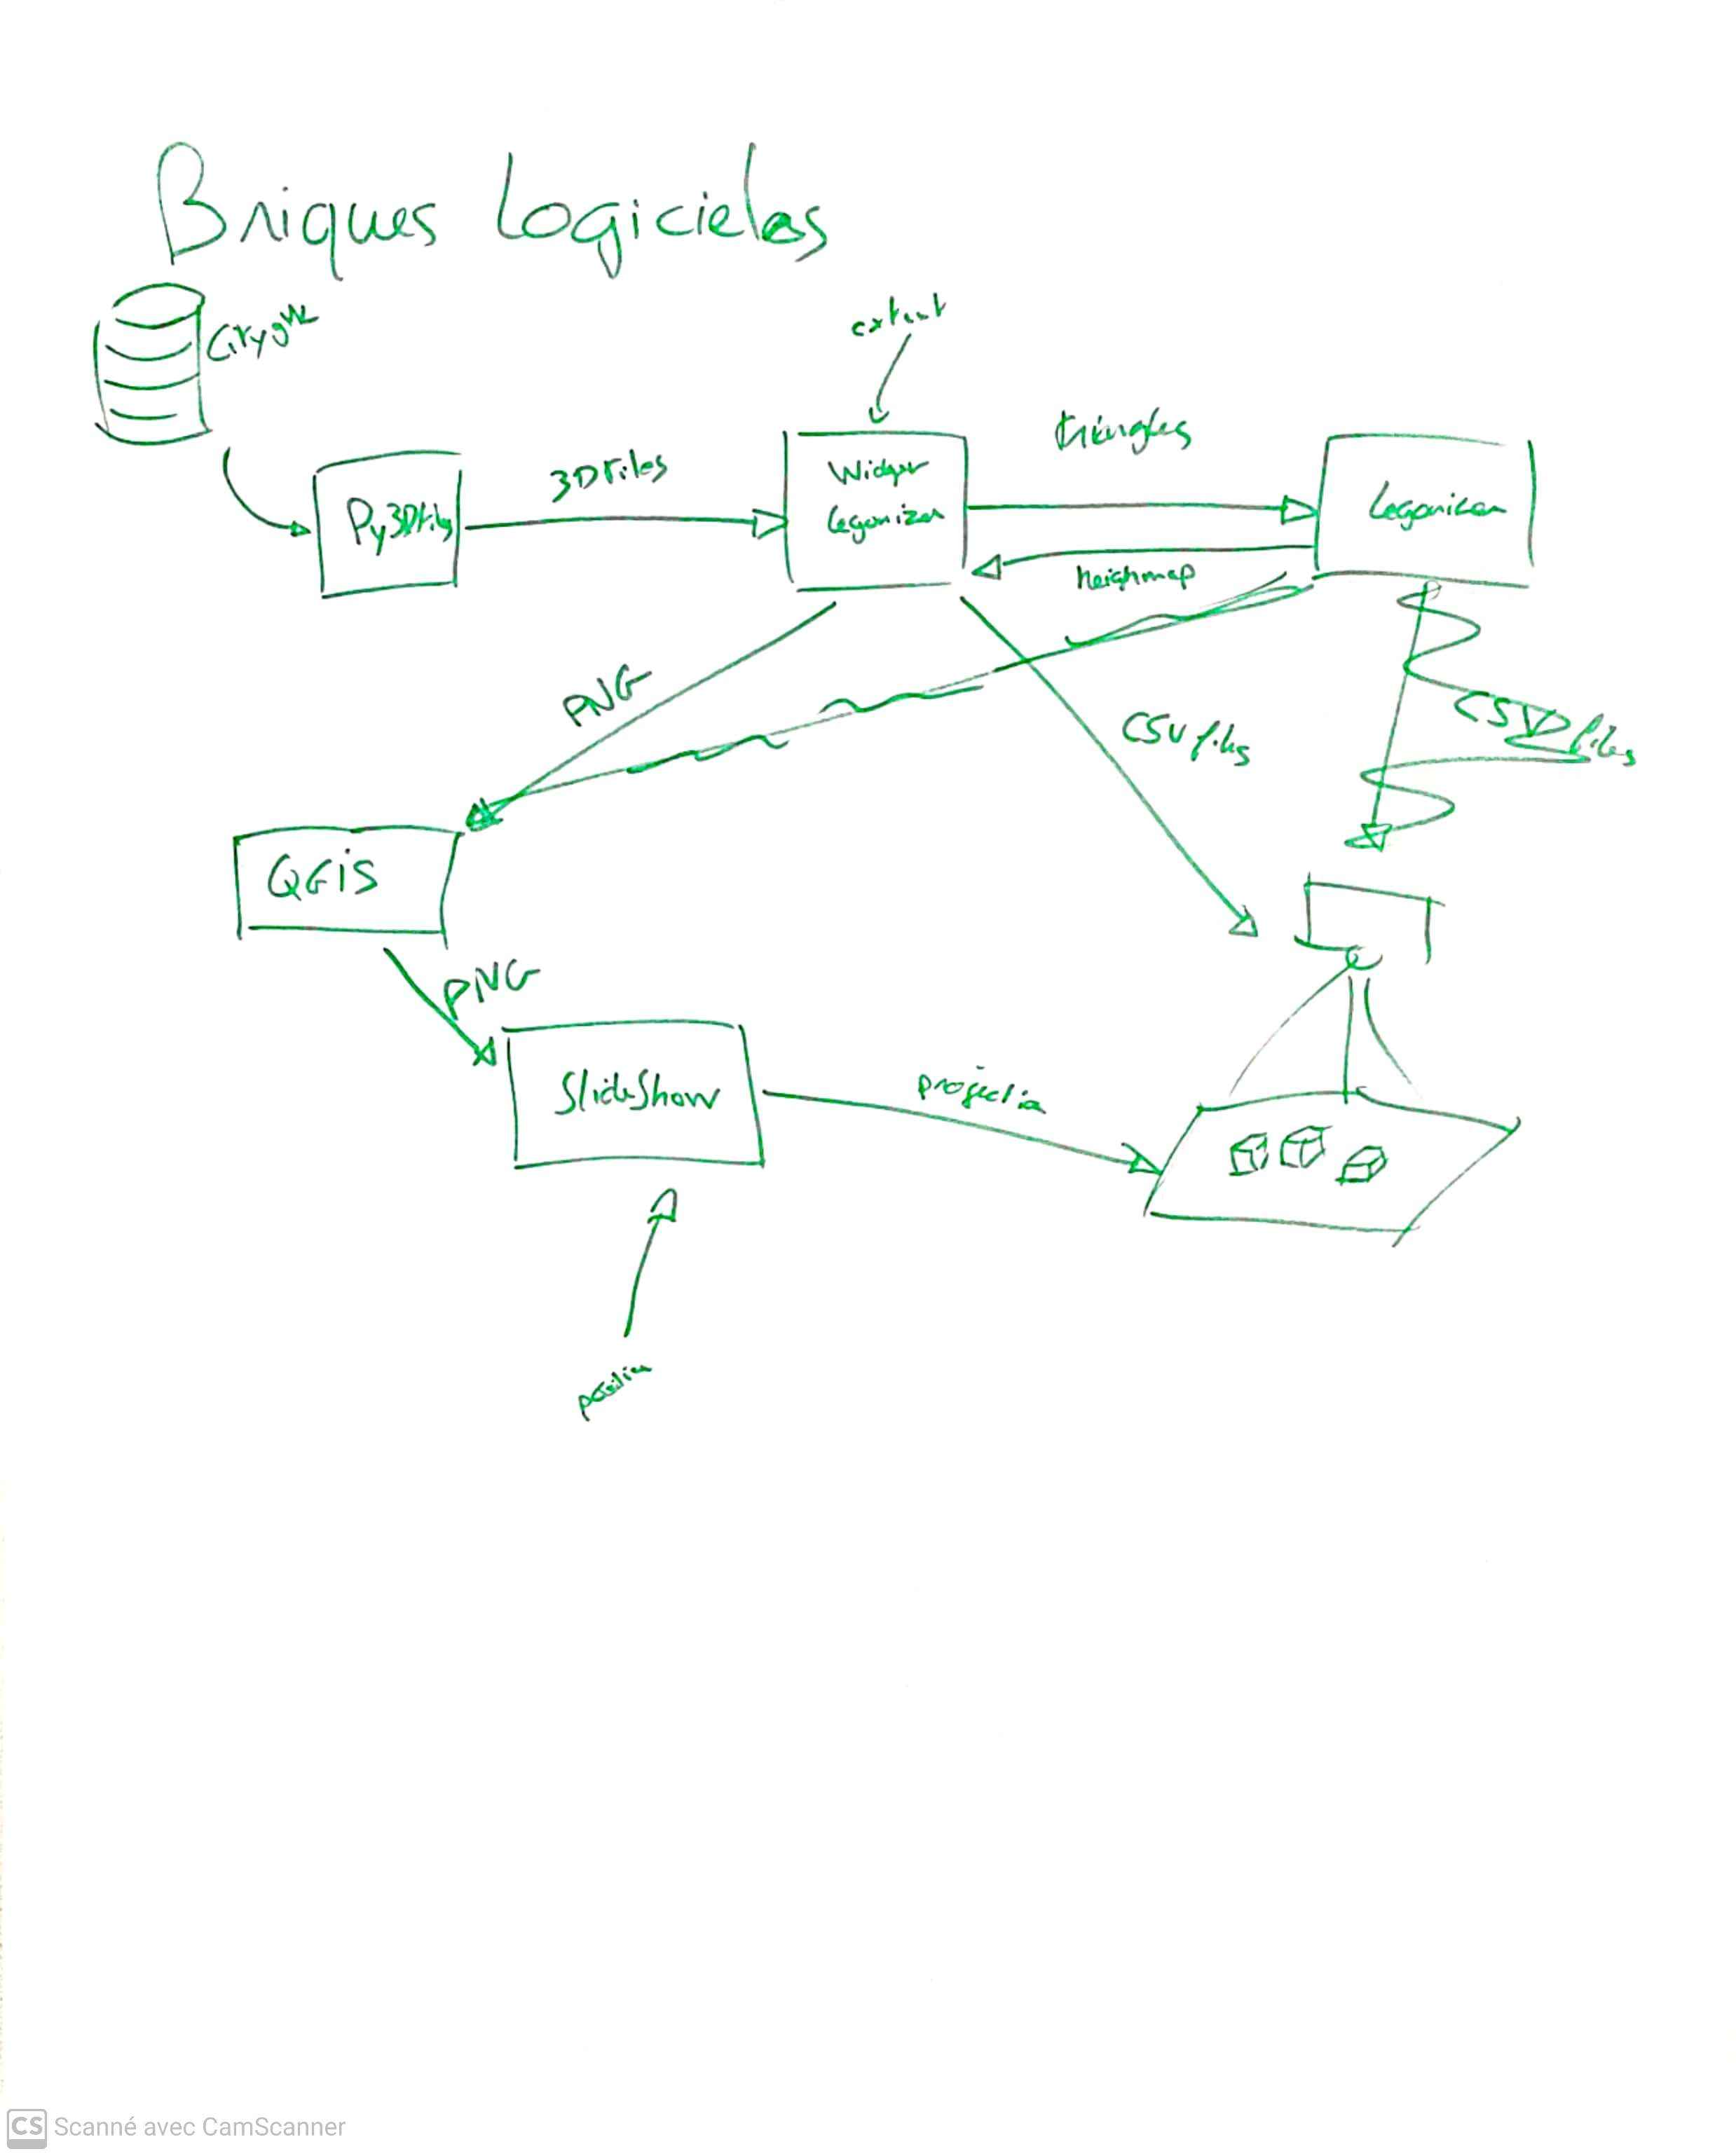 Briques Logicieles
CityGML
extent
triangles
3DTiles
Widget
Legonizer
Legonizer
Py3DTiles
heighmap
PNG
CSV files
CSV files
QGIS
PNG
SlideShow
projection
position
CS Scanné avec CamScanner